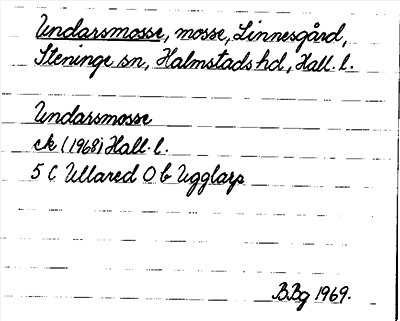 Undarsmosse, mosse, Linnesgård,
Steninge sn, Halmstads hd, Hall. l.
Undarsmosse
ek (1968) Hall. l.
5 C Ullared 0 b Ugglarp
BBg 1969.